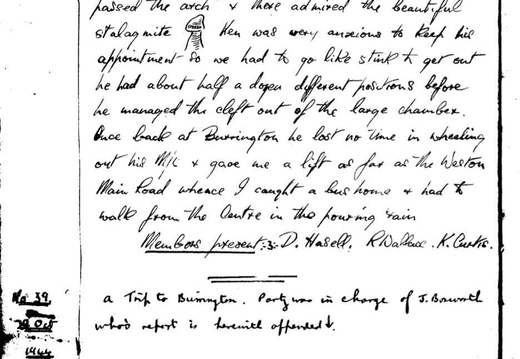 passed the arch & there admired the beautiful
stalagmite Ken was very anxious to keep his
appointment so we had to go like stink to get out
he had about half a dozen different positions before
he managed the cleft out of the large chamber.
Once back at Burrington he lost no time in wheeling
out his M/C & gave me a lift as far as the Weston
Main Road whence I caught a bus home & had to
walk from the Centre in the pouring rain
Members present :3: D. Hasell. R Wallace. K. Curtis.
No 39.
29 Oct
1944
A Trip to Burrington. Party was in charge of J. Bosworth
who's report is herewith appended ↓.